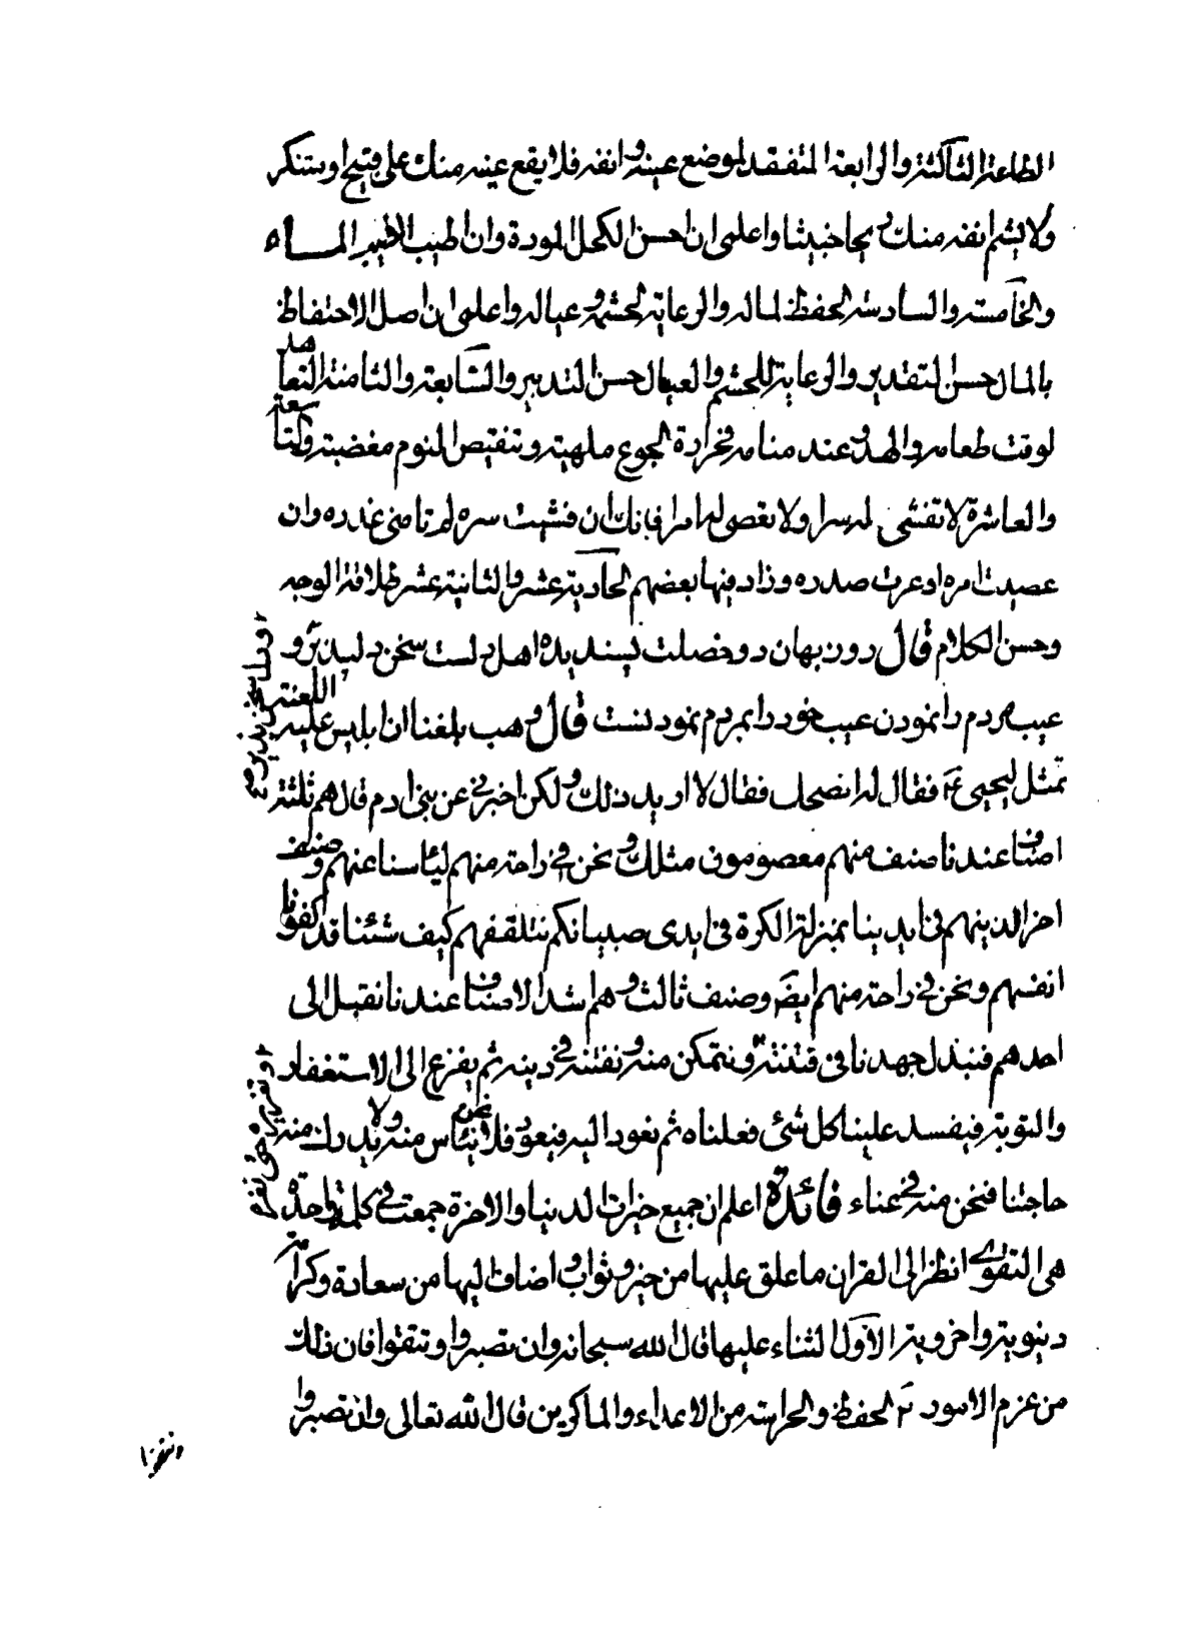 الطاعة الثالثة والرابعة المتفقد لموضع عينه وانفه فلا يقع عينه منك على قبيح او ستنكر
ولا يشم انفه منك ريحا خبيثا واعلمى ان احسن الكحل المودة وان اطيب الطيب المــاء
والخامسة والسادسة الحفظ لماله والرعاية لحشمه وعياله واعلمى ان اصل الاحتفاظ
بالمال حسن التقدير والرعاية للحشم والعيال حسن التدبير والسابعة والثامنة التعاهد
لوقت طعامه والهدو عند منامه فحرارة الجوع ملهبة وتنقيص النوم مغضبة والتاسعة
والعاشرة لا تفشى له سرا ولا تعصى له امرا فانك ان فشيت سره لم تامنى غدره وان
عصيت امره اوغرت صدره وزاد فيها بعضهم الحادية عشر والثانية عشر طلاقة الوجه
وحسن الكلام قال روزبهان دو خصلت پسنديده اهل دلست سخن دلپذير و
عيب مردم را نمودن عيب خود را بمردم نمودنست قال وهب بلغنا ان ابليس عليه اللعنة
تمثل ليحيى ع فقال له انصحك فقال لا اريد ذلك ولكن اخبرنى عن بنى ادم قال هم ثلثة
اصناف عندنا صنف منهم معصومون مثلك ونحن فى راحة منهم ليأسنا عنهم وصنف
اخر الذينهم فى ايدينا بمنزلة الكرة فى ايدى صبيانكم نتلقفهم كيف شئنا قد كفونا
انفسهم ونحن فى راحة منهم ايضا وصنف ثالث وهم اشد الاصناف عندنا نقبل الى
احدهم فنبذل جهدنا فى فتنته ونتمكن منه ونفتنه فى دينه ثم يفزع الى الاستغفار
والتوبة فيفسد علينا كل شئ فعلناه ثم نعود اليه فيعود فلا نحن نيأس منه ولا ندرك منه
حاجتنا فنحن منه فى عناء فائدة اعلم ان جميع خيرات الدنيا والاخرة جمعت فى كلمة واحدة
هى التقوى انظر الى القران ما علق عليها من خير وثواب واضاف اليها من سعادة وكرامة
دنيوية واخروية الاول الثناء عليها قال الله سبحانه وان تصبروا وتتقوا فان ذلك
من عزم الامور ٢ الحفظ والحراسة من الاعداء والماكرين قال الله تعالى وان تصبروا
وتتقوا